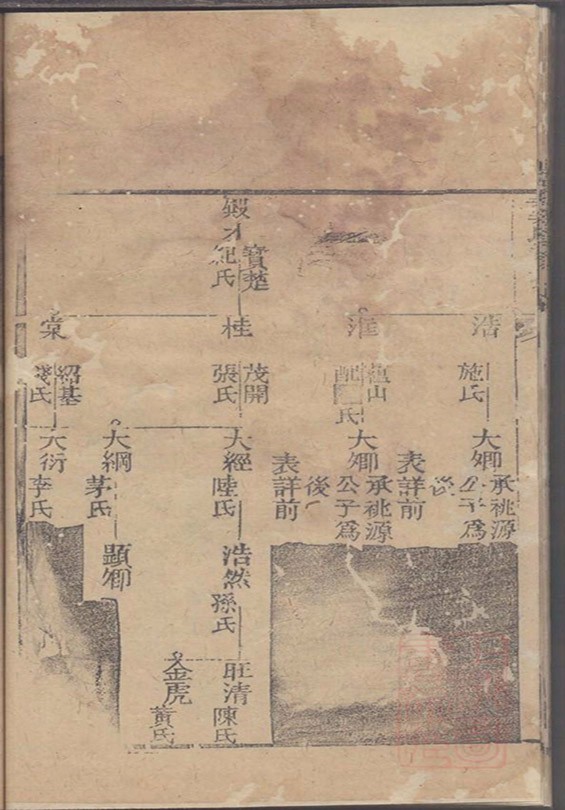 浩
施氏
大卿
承祧源
公子爲
後
表詳前
淮
山
配
氏
大卿
承祧源
公子爲
後
表詳前
毅才
寳楚
紀氏
桂
茂開
張氏
大經
陸氏
浩然
孫氏
旺清
陳氏
金虎
黃氏
大綱
茅氏
顕卿
棠
紹基
氏
大衍
李氏